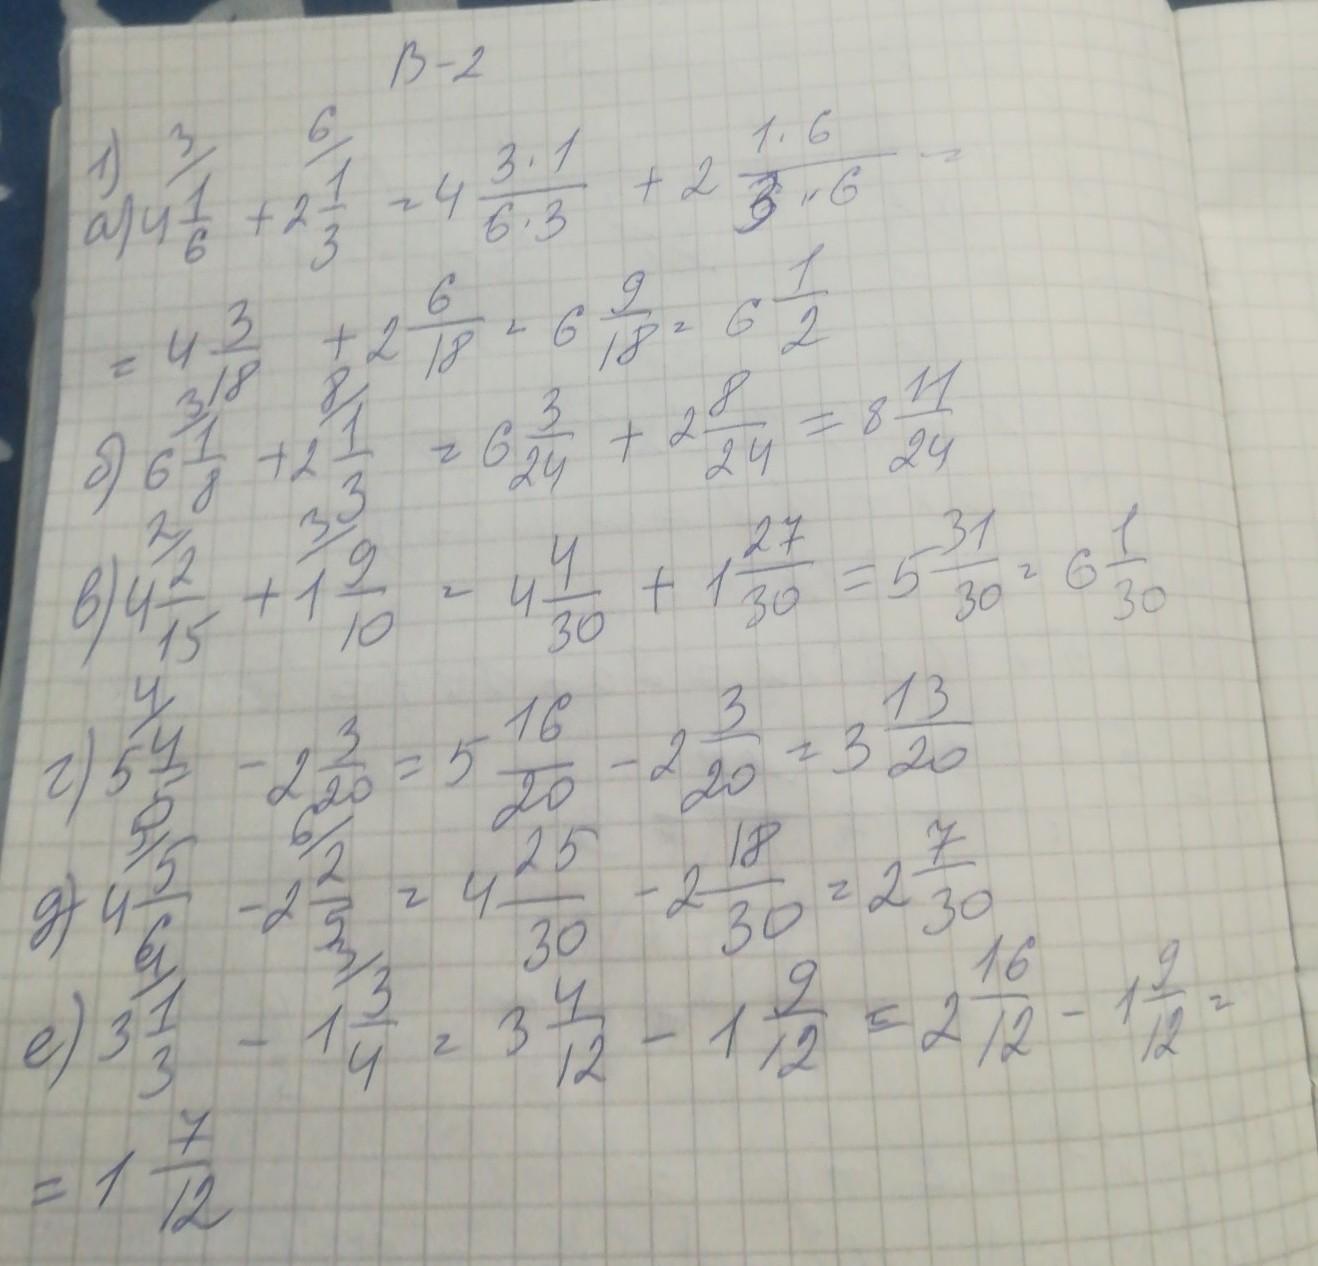 В-2
1)
а) 4 3/ 1/6 + 2 6/ 1/3 = 4 3·1/6·3 + 2 1·6/3·6 =
= 4 3/18 + 2 6/18 = 6 9/18 = 6 1/2
б) 6 3/ 1/8 + 2 8/ 1/3 = 6 3/24 + 2 8/24 = 8 11/24
в) 4 2/ 2/15 + 1 3/ 9/10 = 4 4/30 + 1 27/30 = 5 31/30 = 6 1/30
г) 5 4/ 4/5 - 2 3/20 = 5 16/20 - 2 3/20 = 3 13/20
д) 4 5/ 5/6 - 2 6/ 2/5 = 4 25/30 - 2 18/30 = 2 7/30
е) 3 4/ 1/3 - 1 3/ 3/4 = 3 4/12 - 1 9/12 = 2 16/12 - 1 9/12 =
= 1 7/12